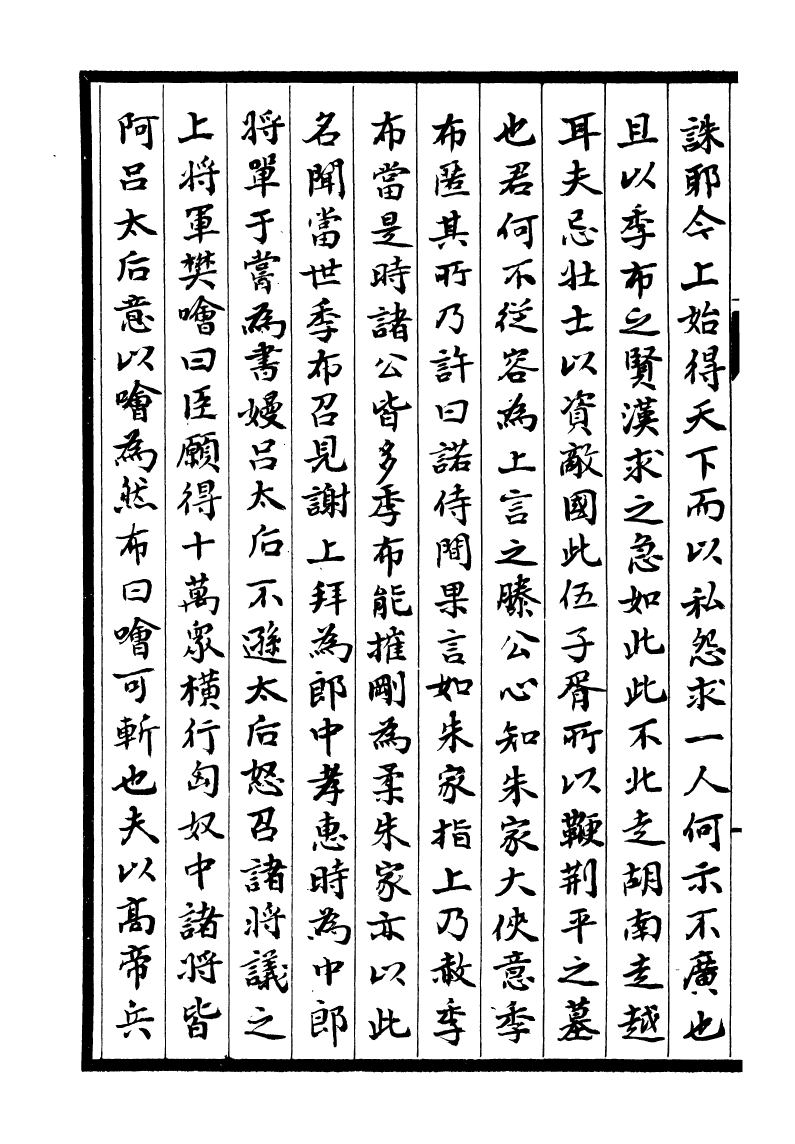 誅耶今上始得天下而以私怨求一人何示不廣也
且以季布之賢漢求之急如此此不北走胡南走越
耳夫忌壯士以資敵國此伍子胥所以鞭荆平之墓
也君何不從容為上言之滕公心知朱家大俠意季
布匿其所乃許曰諾侍間果言如朱家指上乃赦季
布當是時諸公皆多季布能摧剛為柔朱家亦以此
名聞當世季布召見謝上拜為郎中孝惠時為中郎
將單于嘗為書嫚呂太后不遜太后怒召諸將議之
上將軍樊噲曰臣願得十萬眾橫行匈奴中諸將皆
阿呂太后意以噲為然布曰噲可斬也夫以高帝兵